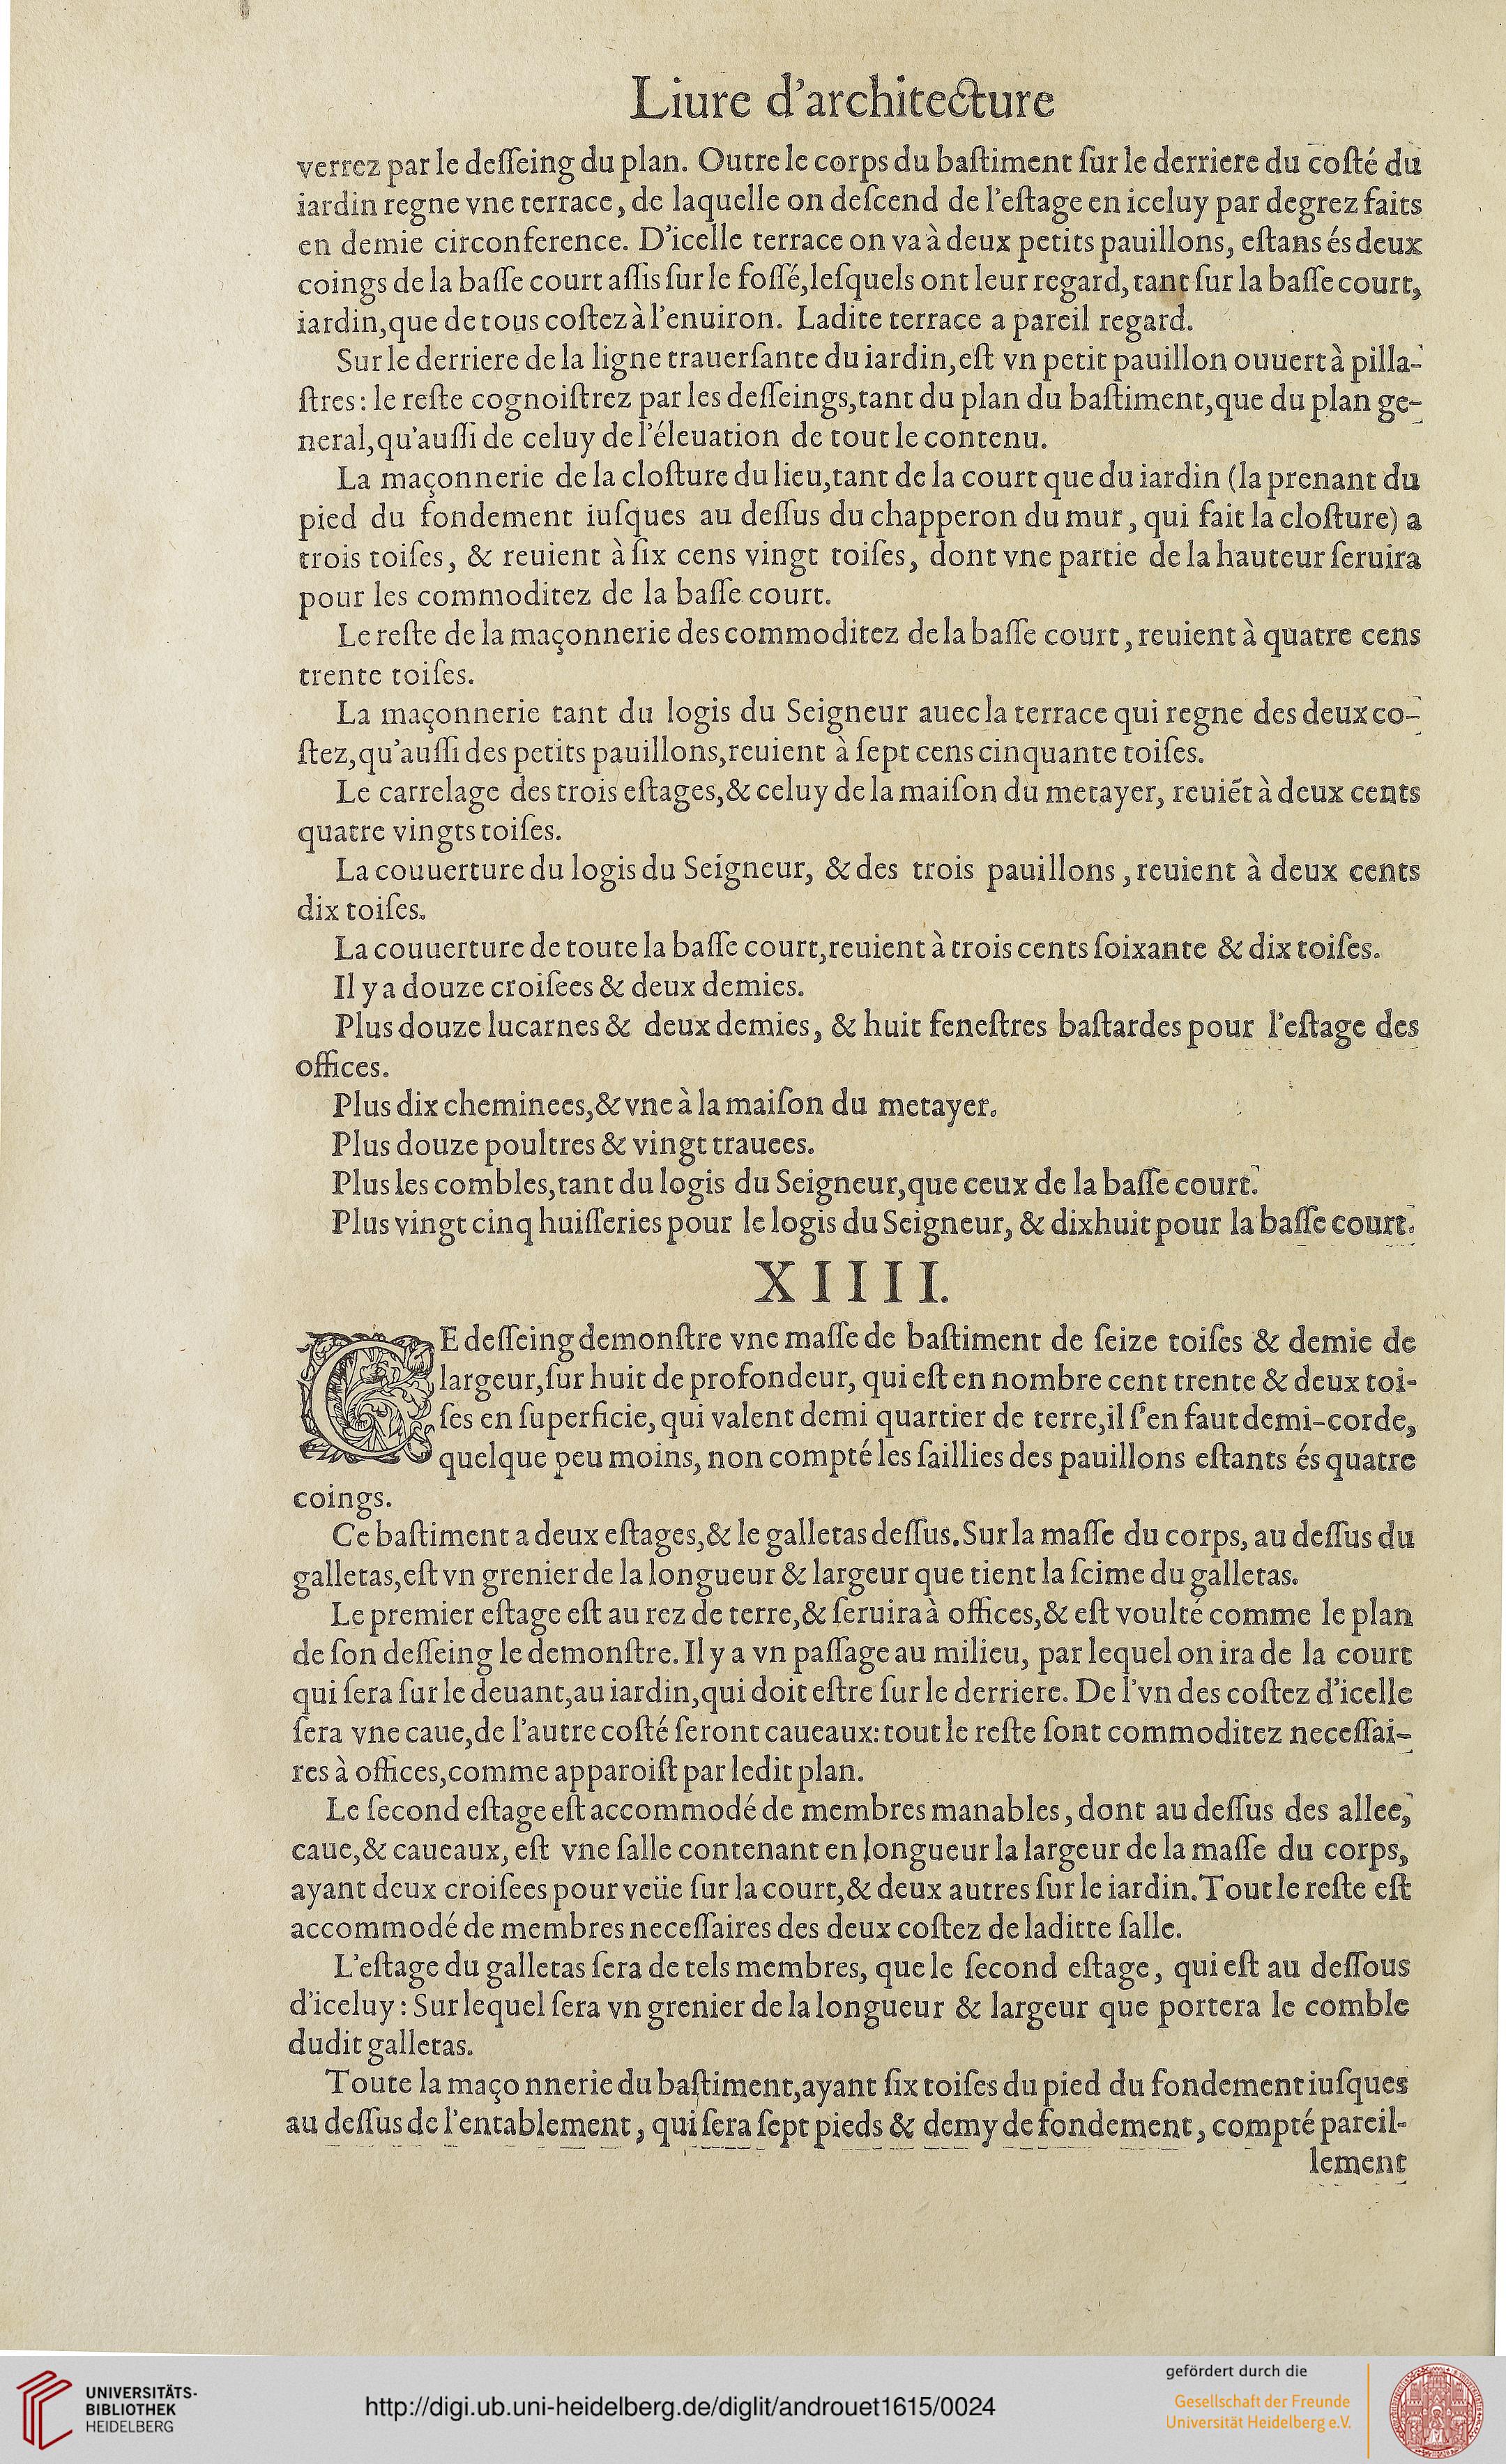 Liure d'architecture
verrez par le deſſeing du plan. Outre le corps du baſtiment ſur le derriere du coſté du
iardin regne vne terrace, de laquelle on deſcend de l'eſtage en iceluy par degrez faits
en demie circonference. D'icelle terrace on va à deux petits pauillons, eſtans és deux
coings de la baſſe court aſſis ſur le foſſé, leſquels ont leur regard, tant ſur la baſſe court,
iardin, que de tous coſtez à l'enuiron. Ladite terrace a pareil regard.
Sur le derriere de la ligne trauerſante du iardin, eſt vn petit pauillon ouuert à pilla-
ſtres: le reſte cognoiſtrez par les deſſeings, tant du plan du baſtiment, que du plan ge-
neral, qu'auſſi de celuy de l'éleuation de tout le contenu.
La maçonnerie de la cloſture du lieu, tant de la court que du iardin (la prenant du
pied du fondement iuſques au deſſus du chapperon du mur, qui fait la cloſture) a
trois toiſes, & reuient à ſix cens vingt toiſes, dont vne partie de la hauteur ſeruira
pour les commoditez de la baſſe court.
Le reſte de la maçonnerie des commoditez de la baſſe court, reuient à quatre cens
trente toiſes.
La maçonnerie tant du logis du Seigneur auec la terrace qui regne des deux co-
ſtez, qu'auſſi des petits pauillons, reuient à ſept cens cinquante toiſes.
Le carrelage des trois eſtages, & celuy de la maiſon du metayer, reuiẽt à deux cents
quatre vingts toiſes.
La couuerture du logis du Seigneur, & des trois pauillons, reuient à deux cents
dix toiſes.
La couuerture de toute la baſſe court, reuient à trois cents ſoixante & dix toiſes.
Il y a douze croiſees & deux demies.
Plus douze lucarnes & deux demies, & huit feneſtres baſtardes pour l'eſtage des
offices.
Plus dix cheminees, & vne à la maiſon du metayer.
Plus douze poultres & vingt trauees.
Plus les combles, tant du logis du Seigneur, que ceux de la baſſe court.
Plus vingt cinq huiſſeries pour le logis du Seigneur, & dixhuit pour la baſſe court.
XIIII.
CE deſſeing demonſtre vne maſſe de baſtiment de ſeize toiſes & demie de
largeur, ſur huit de profondeur, qui eſt en nombre cent trente & deux toi-
ſes en ſuperficie, qui valent demi quartier de terre, il ſ'en faut demi-corde,
quelque peu moins, non compté les ſaillies des pauillons eſtants és quatre
coings.
Ce baſtiment a deux eſtages, & le galletas deſſus. Sur la maſſe du corps, au deſſus du
galletas, eſt vn grenier de la longueur & largeur que tient la ſcime du galletas.
Le premier eſtage eſt au rez de terre, & ſeruira à offices, & eſt voulté comme le plan
de ſon deſſeing le demonſtre. Il y a vn paſſage au milieu, par lequel on ira de la court
qui ſera ſur le deuant, au iardin, qui doit eſtre ſur le derriere. De l'vn des coſtez d'icelle
ſera vne caue, de l'autre coſté ſeront caueaux: tout le reſte ſont commoditez neceſſai-
res à offices, comme apparoiſt par ledit plan.
Le ſecond eſtage eſt accommodé de membres manables, dont au deſſus des allee,
caue, & caueaux, eſt vne ſalle contenant en longueur la largeur de la maſſe du corps,
ayant deux croiſees pour veüe ſur la court, & deux autres ſur le iardin. Tout le reſte eſt
accommodé de membres neceſſaires des deux coſtez de laditte ſalle.
L'eſtage du galletas ſera de tels membres, que le ſecond eſtage, qui eſt au deſſous
d'iceluy: Sur lequel ſera vn grenier de la longueur & largeur que portera le comble
dudit galletas.
Toute la maçonnerie du baſtiment, ayant ſix toiſes du pied du fondement iuſques
au deſſus de l'entablement, qui ſera ſept pieds & demy de fondement, compté pareil-
lement
UNIVERSITÄTS-
BIBLIOTHEK
HEIDELBERG
http://digi.ub.uni-heidelberg.de/diglit/androuet1615/0024
gefördert durch die
Gesellschaft der Freunde
Universität Heidelberg e.V.